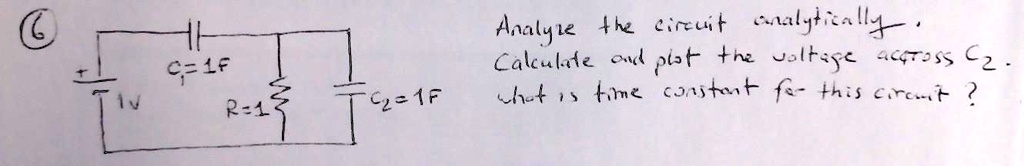 6
Analyze the circuit analytically.
Calculate and plot the voltage accross C2.
what is time constant for this circuit ?
+
C1=1F
1V
R=1
C2=1F